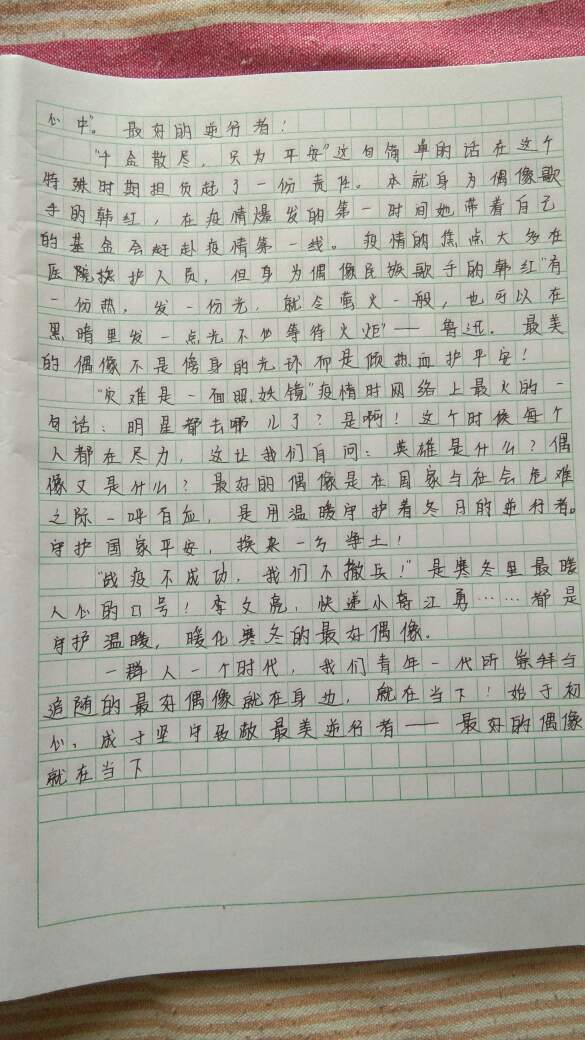 心中"。最好的逆行者！
"千金散尽，只为平安"这句简单的话在这个
特殊时期担负起了一份责任。本就身为偶像歌
手的韩红，在疫情爆发的第一时间她带着自己
的基金会赶赴疫情第一线。疫情的焦点大多在
医院医护人员，但身为偶像民族歌手的韩红"有
一份热，发一份光，就令萤火一般，也可以在
黑暗里发一点光不必等待火炬"——鲁迅．最美
的偶像不是傍身的光环而是倾热血护平安！
"灾难是一面照妖镜"疫情时网络上最火的一
句话：明星都去哪儿了？是啊！这个时候每个
人都在尽力，这让我们自问：英雄是什么？偶
像又是什么？最好的偶像是在国家与社会危难
之际一呼百应，是用温暖守护着冬月的逆行者。
守护国家平安，换来一方净土！
"战疫不成功，我们不撤兵！"是寒冬里最暖
人心的口号！李文亮，快递小哥汪勇……都是
守护温暖，暖化寒冬的最好偶像．
一群人一个时代，我们青年一代所崇拜与
追随的最好偶像就在身边，就在当下！始于初
心、成于坚守致敬最美逆行者——最好的偶像
就在当下